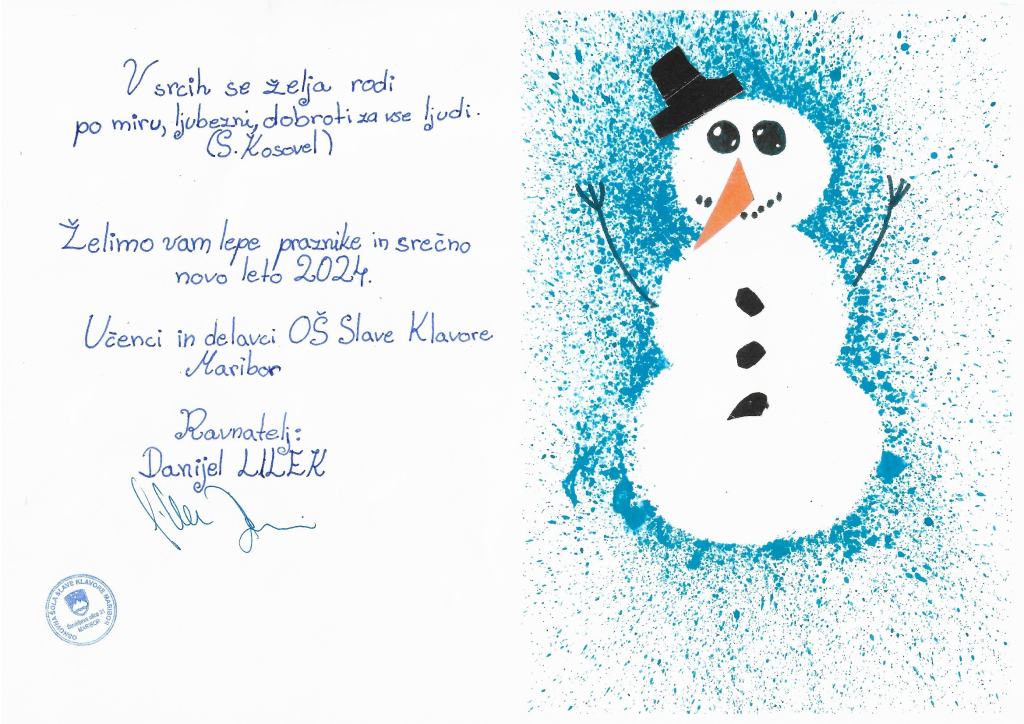 V srcih se želja rodi
po miru, ljubezni, dobroti za vse ljudi.
(S. Kosovel)
Želimo vam lepe praznike in srečno
novo leto 2024.
Učenci in delavci OŠ Slave Klavore
Maribor
Ravnatelj:
Danijel LILEK
OSNOVNA ŠOLA SLAVE KLAVORE MARIBOR
MARIBOR